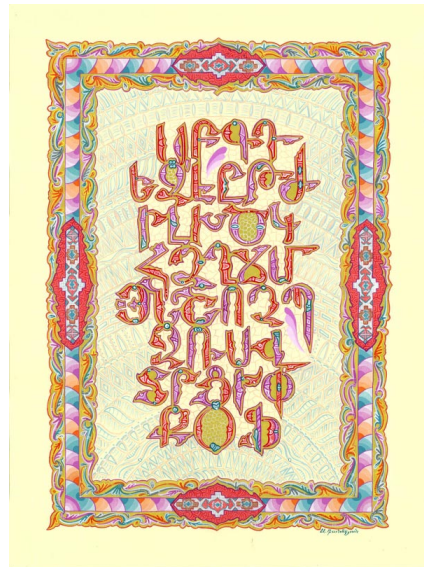 ԱԲԳԴ
ԵԶԷԸԹԺ
ԻԼԽԾԿ
ՀՁՂՃՄ
ՅՆՇՈՉՊ
ՋՌՍՎ
ՏՐՑՒՓ
ՔՕՖ